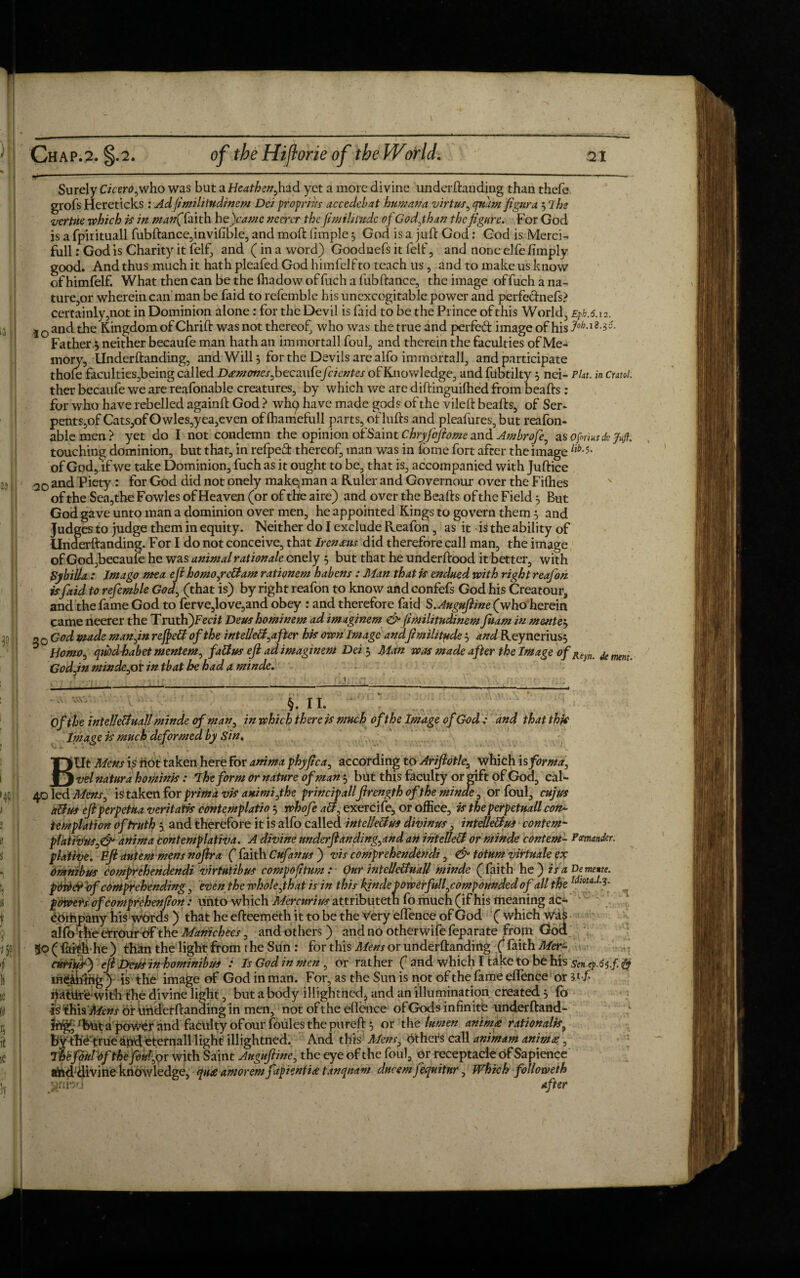 CHAP.2. §.2. of the Hiſtorie of the World. 21
Surely Cicero,who was but a Heathen,had yet a more divine underſtanding than theſe
groſs Hereticks : Ad ſimilitudinem Dei propriùs accedebat humana virtus, quàm figura ; The
vertue which is in man(ſaith he)came neerer the ſimilitude of God,than the figure. For God
is a ſpirituall ſubſtance,inviſible, and moſt ſimple ; God is a juſt God : God is Merci-
full : God is Charity it ſelf, and ( in a word) Goodneſs it ſelf, and none elſe ſimply
good. And thus much it hath pleaſed God himſelf to teach us, and to make us know
of himſelf. What then can be the ſhadow of ſuch a ſubſtance, the image of ſuch a na-
ture,or wherein can man be ſaid to reſemble his unexcogitable power and perfectneſs?
certainly,not in Dominion alone : for the Devil is ſaid to be the Prince of this World, Eph.6.12.
10 and the Kingdom of Chriſt was not thereof, who was the true and perfect image of his Joh.18.36.
Father ; neither becauſe man hath an immortall ſoul, and therein the faculties of Me-
mory, Underſtanding, and Will ; for the Devils are alſo immortall, and participate
thoſe faculties,being called Dæmones,becauſe ſcientes of Knowledge, and ſubtilty ; nei- Plat. in Cratol.
ther becauſe we are reaſonable creatures, by which we are diſtinguiſhed from beaſts :
for who have rebelled againſt God ? who have made gods of the vileſt beaſts, of Ser-
pents,of Cats,of Owles,yea,even of ſhamefull parts, of luſts and pleaſures, but reaſon-
able men ? yet do I not condemn the opinion of Saint Chryſoſtome and Ambroſe, as Oſorius de Juſt.
touching dominion, but that, in reſpect thereof, man was in ſome ſort after the image lib.5.
of God, if we take Dominion, ſuch as it ought to be, that is, accompanied with Juſtice
20 and Piety : for God did not onely make man a Ruler and Governour over the Fiſhes
of the Sea,the Fowles of Heaven (or of the aire) and over the Beaſts of the Field ; But
God gave unto man a dominion over men, he appointed Kings to govern them ; and
Judges to judge them in equity. Neither do I exclude Reaſon, as it is the ability of
Underſtanding. For I do not conceive, that Irenæus did therefore call man, the image
of God,becauſe he was animal rationale onely ; but that he underſtood it better, with
Sybilla : Imago mea eſt homo,rectam rationem habens : Man that is endued with right reaſon
is ſaid to reſemble God, (that is) by right reaſon to know and confeſs God his Creatour,
and the ſame God to ſerve,love,and obey : and therefore ſaid S.Auguſtine (who herein
came neerer the Truth)Fecit Deus hominem ad imaginem & ſimilitudinem ſuam in mente;
30 God made man,in reſpect of the intellect,after his own Image and ſimilitude ; and Reynerius;
Homo, quòd habet mentem, factus eſt ad imaginem Dei ; Man was made after the Image of Reyn. de ment.
God,in minde,or in that he had a minde.
§. II.
Of the intellectuall minde of man, in which there is much of the Image of God : and that this
Image is much deformed by Sin.
BUt Mens is not taken here for anima phyſica, according to Ariſtotle, which is forma,
vel natura hominis : The form or nature of man ; but this faculty or gift of God, cal-
40 led Mens, is taken for prima vis animi,the principall ſtrength of the minde, or ſoul, cujus
actus eſt perpetua veritatis contemplatio ; whoſe act, exerciſe, or office, is the perpetuall con-
templation of truth ; and therefore it is alſo called intellectus divinus, intellectus contem-
plativus,& anima contemplativa. A divine underſtanding,and an intellect or minde contem- Pœmander.
plative. Eſt autem mens noſtra ( ſaith Cuſanus ) vis comprehendendi, & totum virtuale ex
omnibus comprehendendi virtutibus compoſitum : Our intellectuall minde ( ſaith he ) is a De mente.
power of comprehending, even the whole,that is in this kinde powerfull,compounded of all the Idiota.l.3.
powers of comprehenſion : unto which Mercurius attributeth ſo much (if his meaning ac-
company his words ) that he eſteemeth it to be the very eſſence of God ( which was
alſo the errour of the Manichees, and others ) and no otherwiſe ſeparate from God
50 ( ſaith he ) than the light from the Sun : for this Mens or underſtanding ( ſaith Mer-
curius ) eſt Deus in hominibus : Is God in men, or rather ( and which I take to be his Sen.ep.65.f. &
meaning ) is the image of God in man. For, as the Sun is not of the ſame eſſence or 31.f.
nature with the divine light, but a body illightned, and an illumination created ; ſo
is this Mens or underſtanding in men, not of the eſſence of Gods infinite underſtand-
ing, but a power and faculty of our ſoules the pureſt ; or the lumen animæ rationalis,
by the true and eternall light illightned. And this Mens, others call animam animæ,
The ſoul of the ſoul,or with Saint Auguſtine, the eye of the ſoul, or receptacle of Sapience
and divine knowledge, quæ amorem ſapientiæ tanquam ducem ſequitur, Which followeth
after